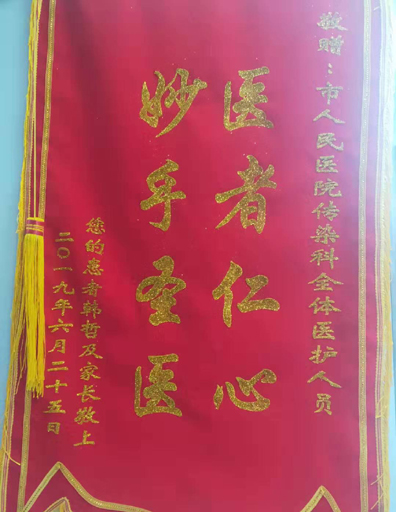 敬赠：市人民医院传染科全体医护人员
医者仁心
妙手圣医
您的患者韩哲及家长敬上
二〇一九年六月二十五日